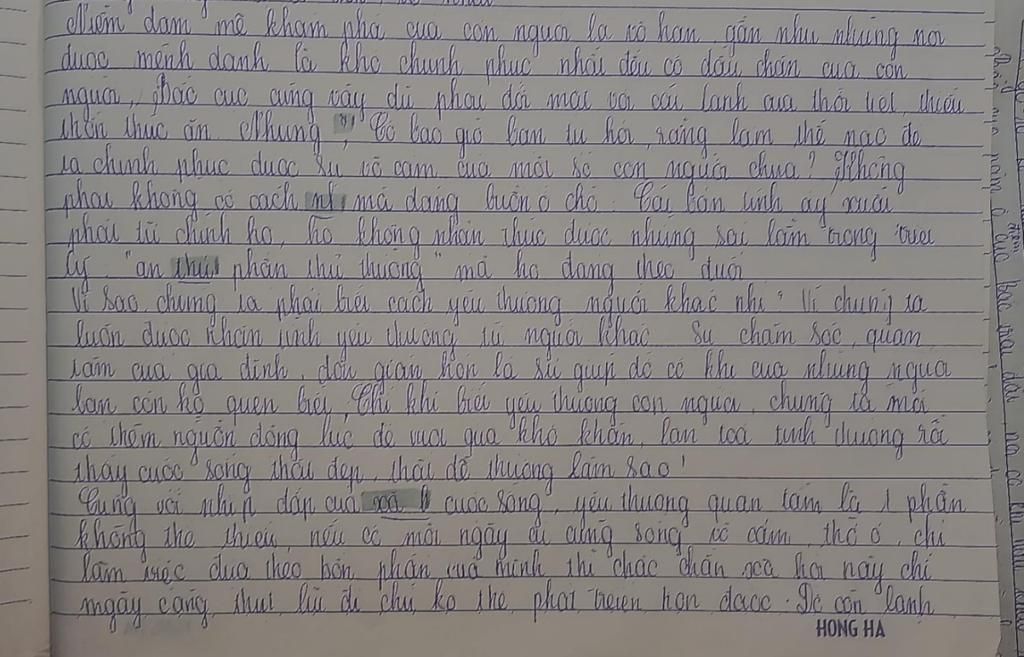 Niềm đam mê khám phá của con người là vô hạn, gần như những nơi
được mệnh danh là khó chinh phục nhất đều có dấu chân của con
người, Bắc cực cũng vậy dù phải đối mặt với cái lạnh của thời tiết, thiếu
thốn thức ăn Nhưng, Có bao giờ bạn tự hỏi, rằng làm thế nào để
ta chinh phục được sự vô cảm của một số con người chưa? Không
phải không có cách mà đáng buồn ở chỗ. Cái bản tính ấy xuất
phát từ chính họ, họ không nhận thức được những sai lầm trong triết
lý. "an phận thủ thường" mà họ đang theo đuổi
Vì sao chúng ta phải biết cách yêu thương người khác nhỉ? Vì chúng ta
luôn được nhận tình yêu thương từ người khác sự chăm sóc, quan
tâm của gia đình, đơn giản hơn là sự giúp đỡ có khi của những người
bạn còn họ quen biết, Chỉ khi biết yêu thương con người, chúng ta mới
có thêm nguồn động lực để vượt qua khó khăn, lan toả tình thương rồi
thấy cuộc sống thật đẹp, thật dễ thương làm sao!
Cùng với nhịp đập của cuộc sống, yêu thương quan tâm là 1 phần
không thể thiếu, nếu cứ mỗi ngày ai cũng sống vô cảm, thờ ơ, chỉ
làm việc dựa theo bổn phận của mình thì chắc chắn xã hội này chỉ
ngày càng thụt lùi đi chứ ko thể phát triển hơn được. Để còn lành
HONG HA